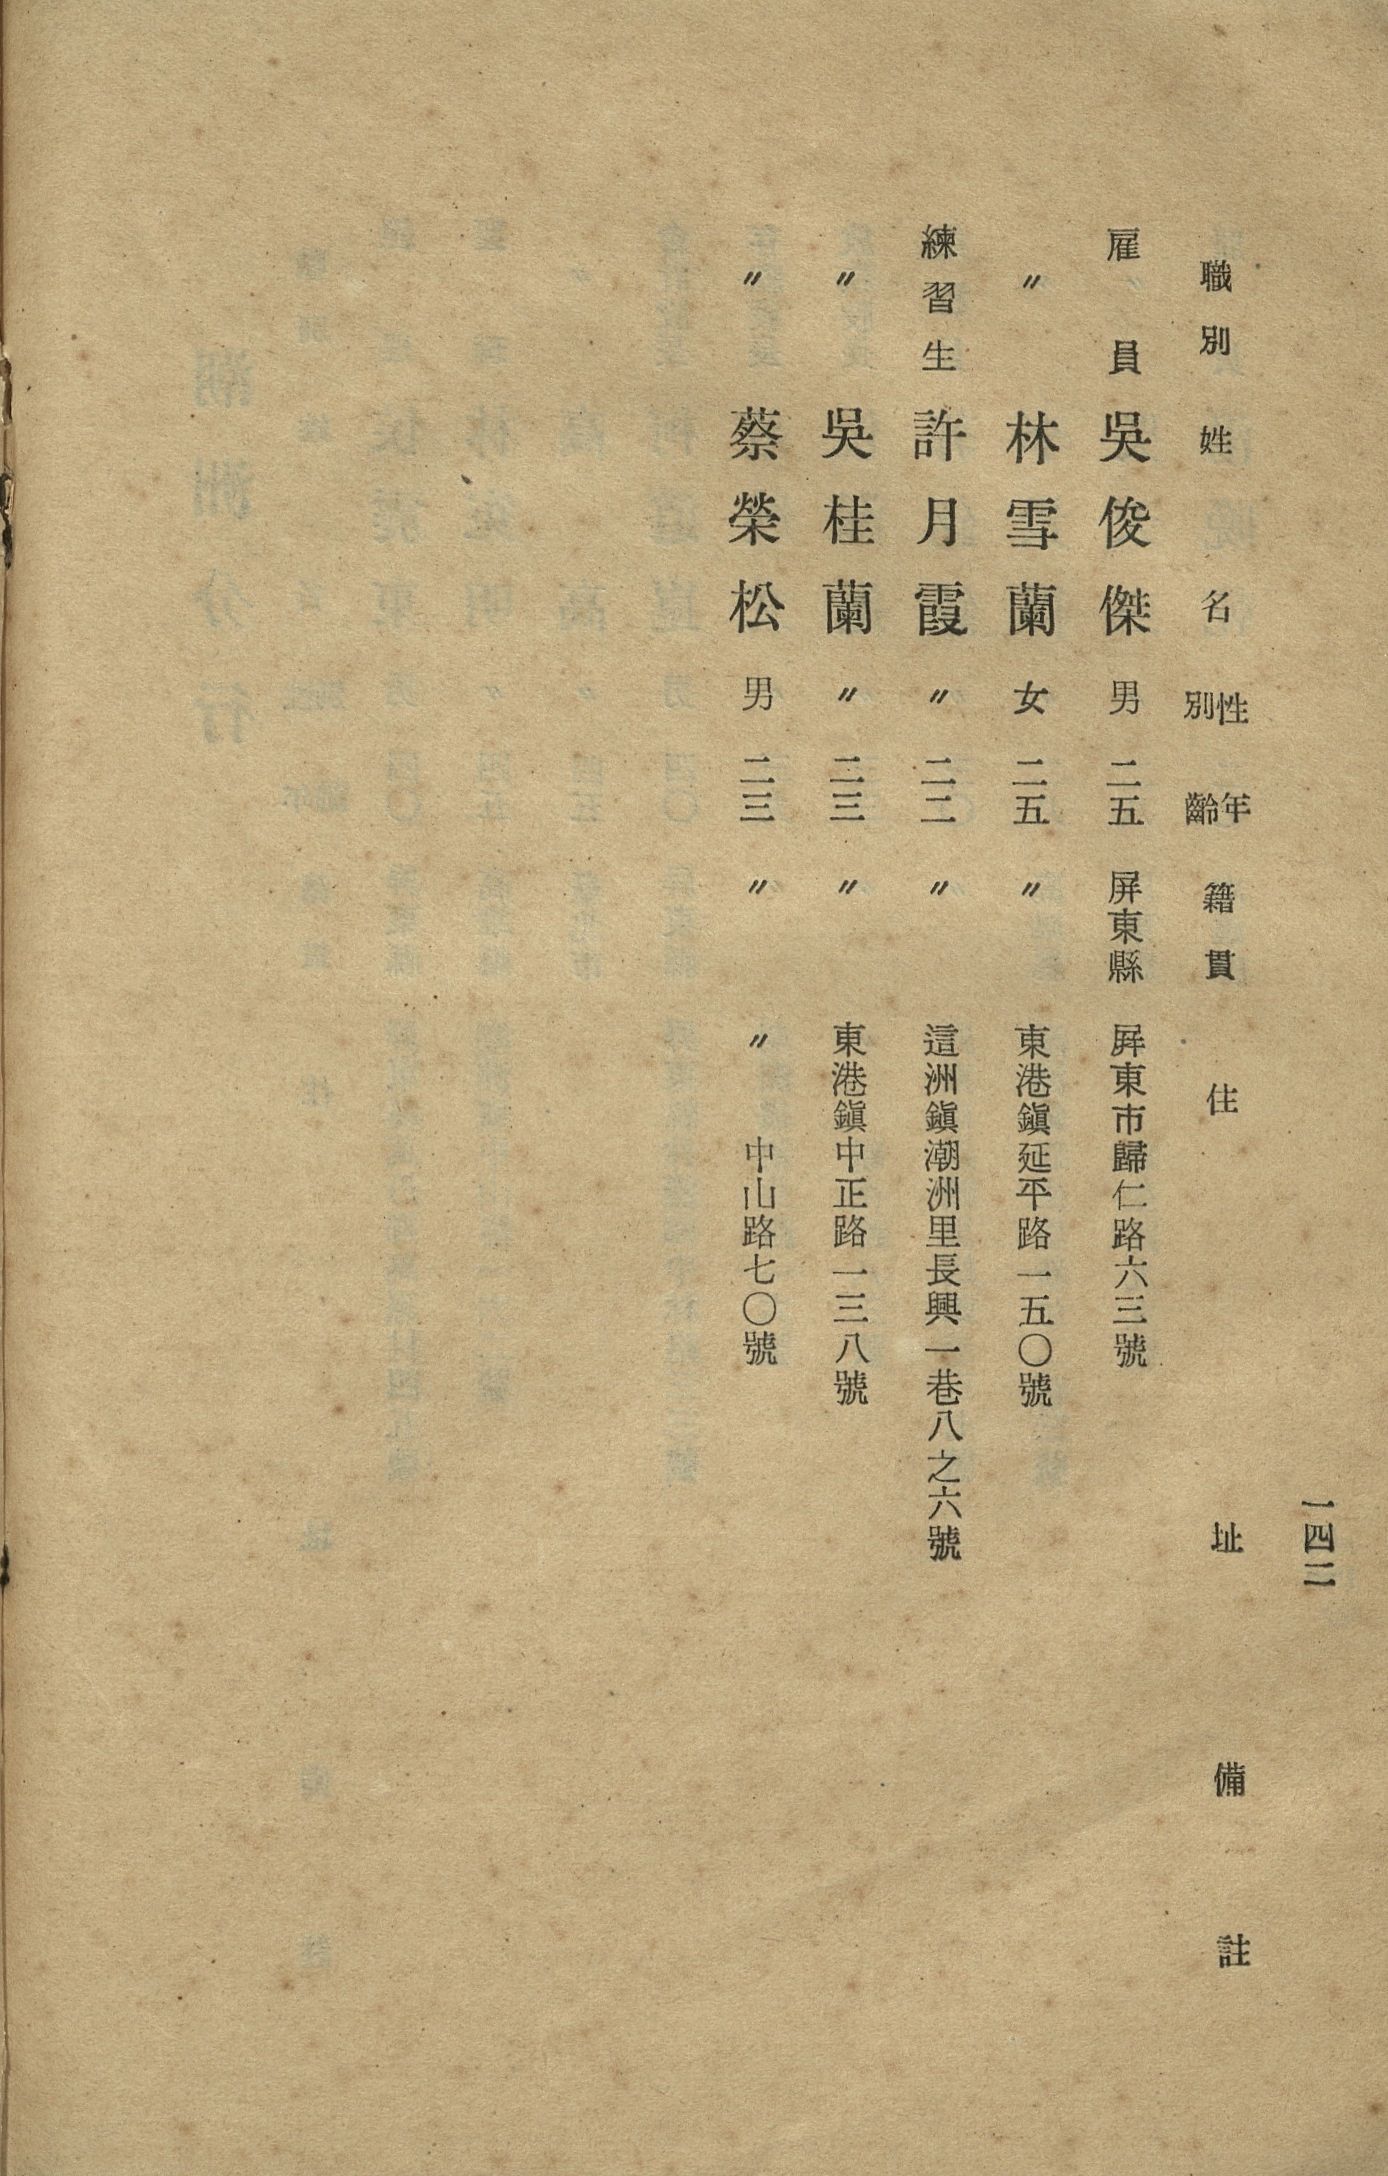 一四二
職別 姓名 性別 年齡 籍貫 住址 備註
雇員 吳俊傑 男 二五 屏東縣 屛東市歸仁路六三號
〃 林雪蘭 女 二五 〃 東港鎭延平路一五〇號
練習生 許月霞 〃 二二 〃 這洲鎭潮洲里長興一巷八之六號
〃 吳桂蘭 〃 二三 〃 東港鎭中正路一三八號
〃 蔡榮松 男 二三 〃 〃 中山路七〇號